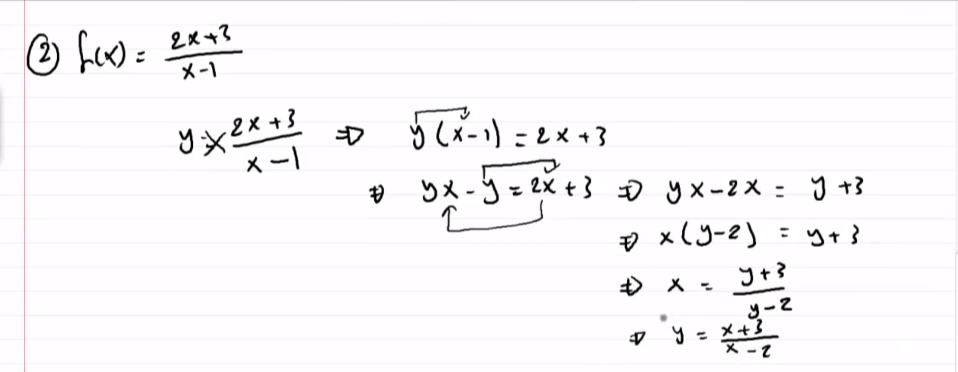 ② f(x) = (2x+3)/(x-1)
y = (2x+3)/(x-1) ⇒ y(x-1) = 2x+3
⇒ yx - y = 2x+3 ⇒ yx-2x = y+3
⇒ x(y-2) = y+3
⇒ x = (y+3)/(y-2)
⇒ y = (x+3)/(x-2)